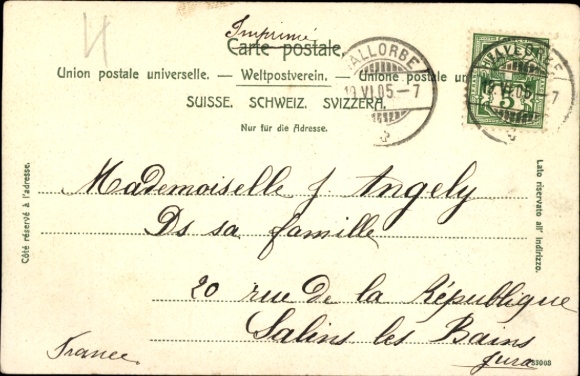 Imprimé
Carte postale.
Union postale universelle. — Weltpostverein. — Unione postale
SUISSE. SCHWEIZ. SVIZZERA.
Nur für die Adresse.
VALLORBE
19.VI.05–7
VALLORBE
19.VI.05–7
5
Côté réservé à l'adresse.
Lato riservato all' indirizzo.
Mademoiselle J. Angely
Ds sa famille
20 rue de la République
Salins les Bains
Jura
France